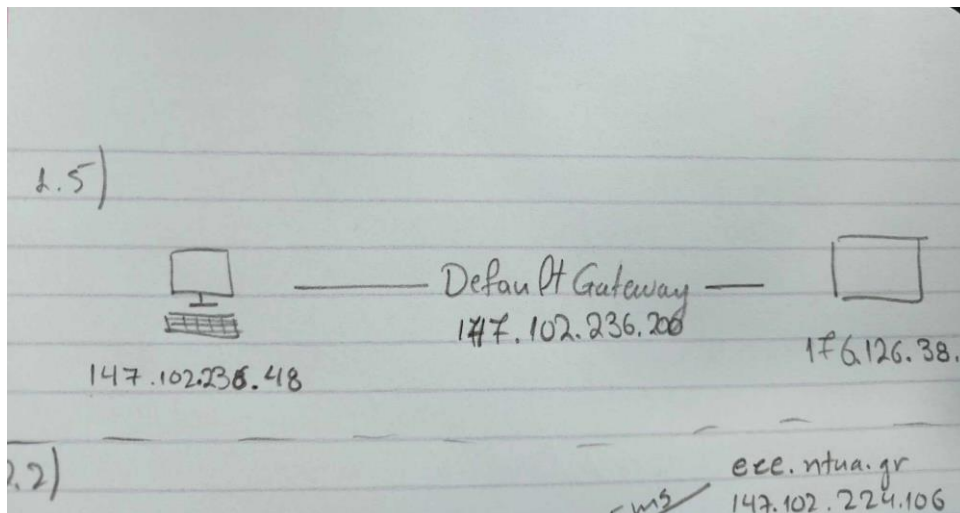 1.5)
Default Gateway
147.102.236.200
147.102.236.48
176.126.38.
2.2)
ece.ntua.gr
147.102.224.106
ms